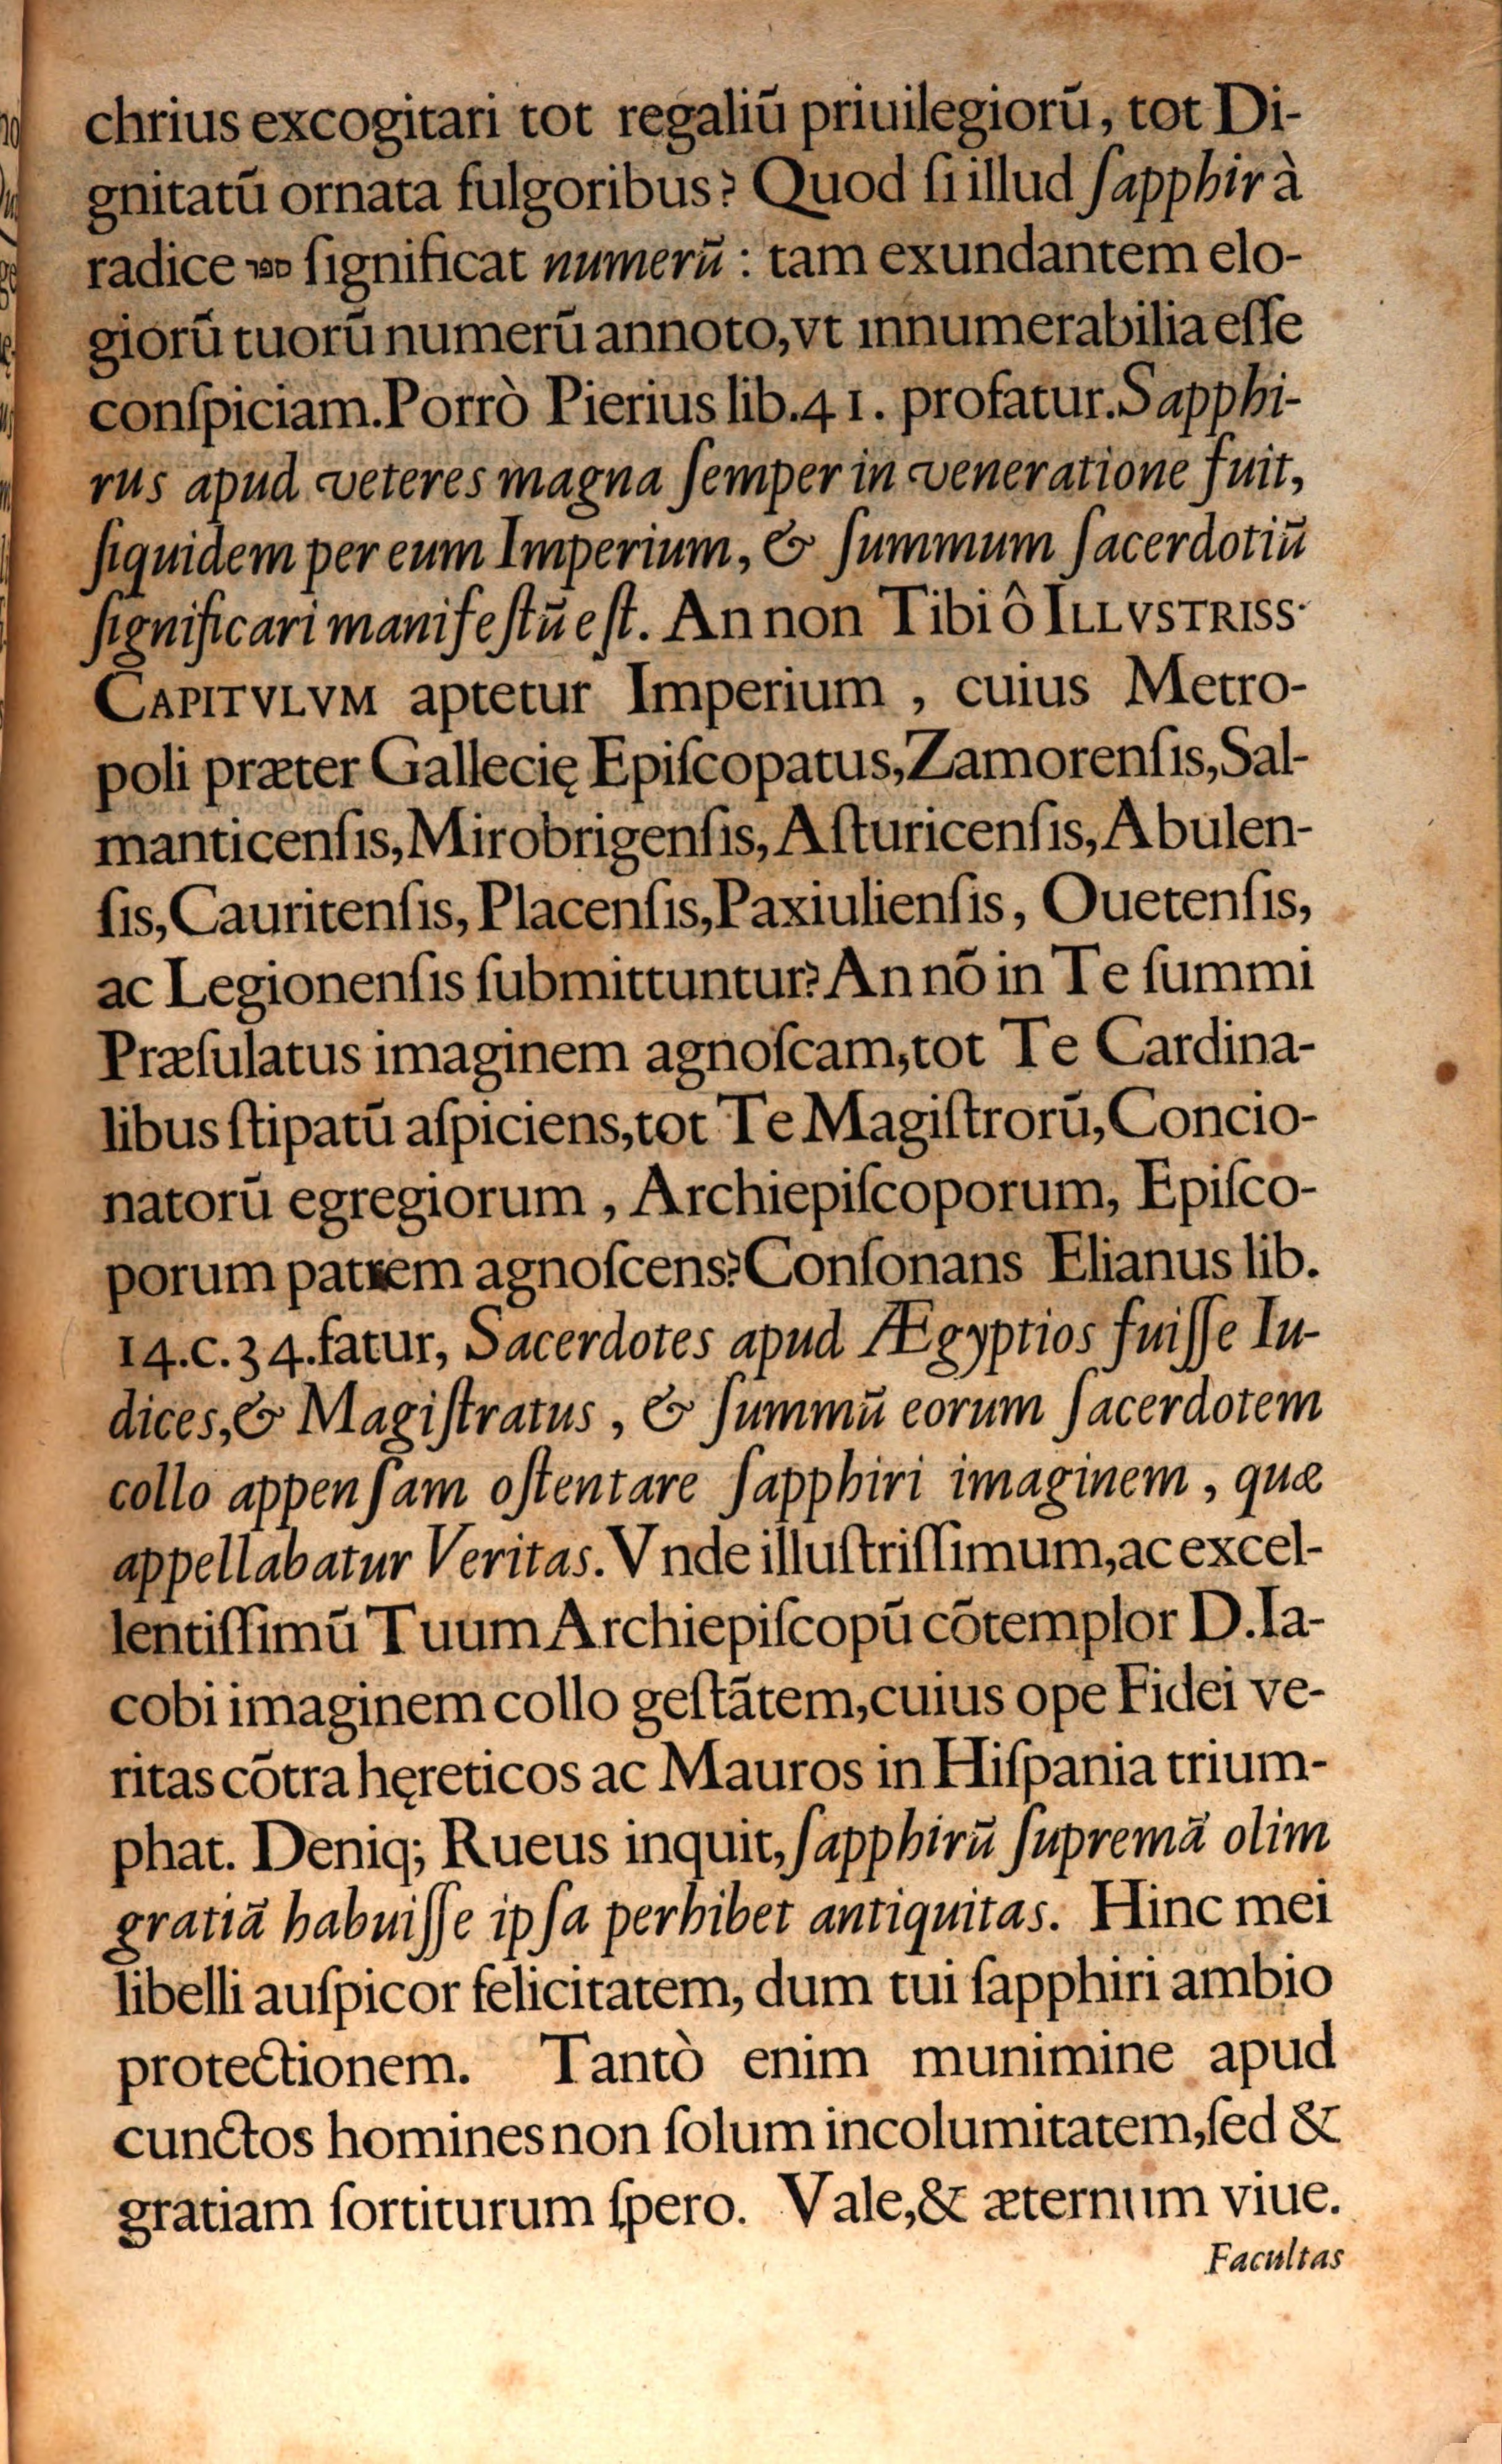 chrius excogitari tot regaliũ priuilegiorũ, tot Di-
gnitatũ ornata fulgoribus? Quod ſi illud ſapphir à
radice ספר ſignificat numerũ : tam exundantem elo-
giorũ tuorũ numerũ annoto, vt innumerabilia eſſe
conſpiciam. Porrò Pierius lib. 41. profatur. Sapphi-
rus apud veteres magna ſemper in veneratione fuit,
ſiquidem per eum Imperium, & ſummum ſacerdotiũ
ſignificari manifeſtũ eſt. An non Tibi ô ILLVSTRISS.
CAPITVLVM aptetur Imperium , cuius Metro-
poli præter Gallecię Epiſcopatus, Zamorenſis, Sal-
manticenſis, Mirobrigenſis, Aſturicenſis, Abulen-
ſis, Cauritenſis, Placenſis, Paxiulienſis, Ouetenſis,
ac Legionenſis ſubmittuntur? An nõ in Te ſummi
Præſulatus imaginem agnoſcam, tot Te Cardina-
libus ſtipatũ aſpiciens, tot Te Magiſtrorũ, Concio-
natorũ egregiorum , Archiepiſcoporum, Epiſco-
porum patrem agnoſcens? Conſonans Elianus lib.
14. c. 34. fatur, Sacerdotes apud Ægyptios fuiſſe Iu-
dices, & Magiſtratus , & ſummũ eorum ſacerdotem
collo appenſam oſtentare ſapphiri imaginem , quæ
appellabatur Veritas. Vnde illuſtriſſimum, ac excel-
lentiſſimũ Tuum Archiepiſcopũ cõtemplor D. Ia-
cobi imaginem collo geſtãtem, cuius ope Fidei ve-
ritas cõtra hęreticos ac Mauros in Hiſpania trium-
phat. Deniq; Rueus inquit, ſapphirũ ſupremã olim
gratiã habuiſſe ipſa perhibet antiquitas. Hinc mei
libelli auſpicor felicitatem, dum tui ſapphiri ambio
protectionem. Tantò enim munimine apud
cunctos homines non ſolum incolumitatem, ſed &
gratiam ſortiturum ſpero. Vale, & æternum viue.
Facultas